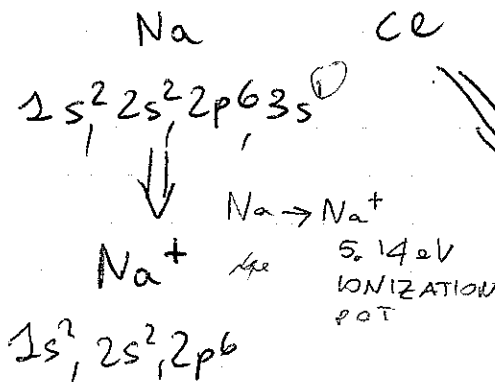 Na Cl
1s², 2s², 2p⁶, 3s¹
Na → Na⁺
5.14 eV
Na⁺
IONIZATION
POT
1s², 2s², 2p⁶